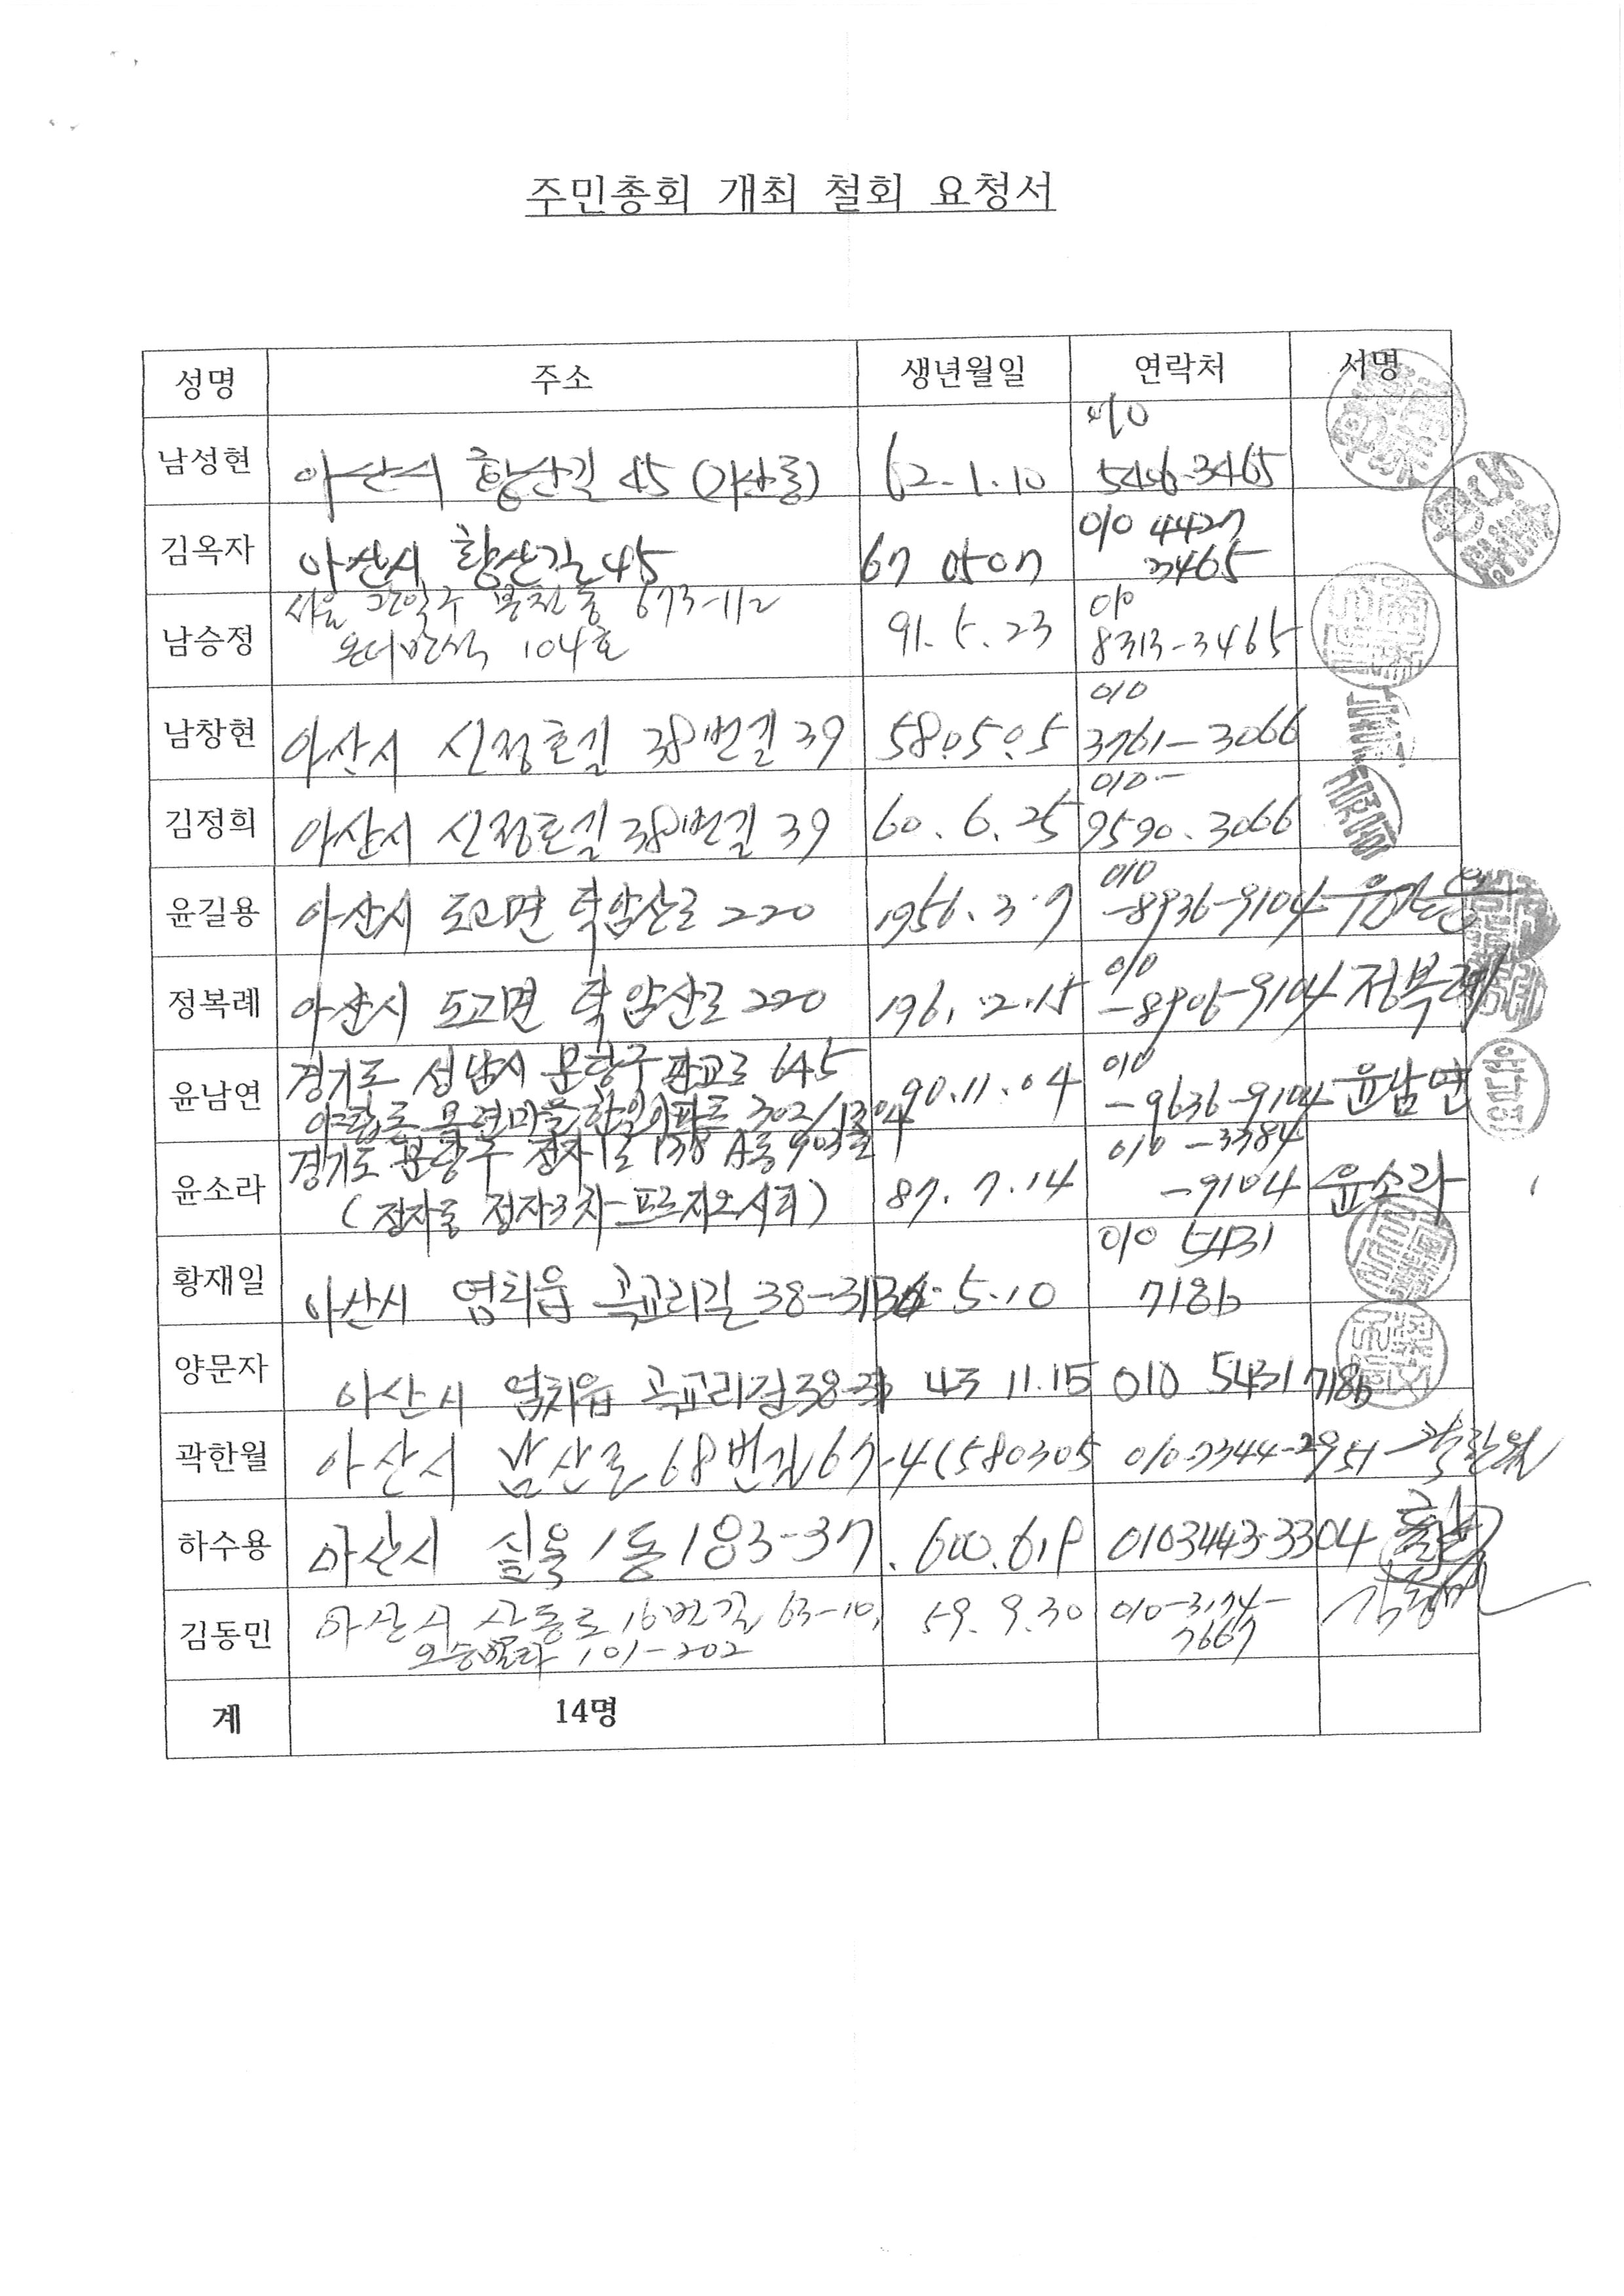 주민총회 개최 철회 요청서
성명 주소 생년월일 연락처 서명
남성현 아산시 황산길 45 (기산동) 62-1.10 010 5456-3465
김옥자 아산시 황산길 45 67 0507 010 4427 3465
남승정 서울 관악구 봉천동 673-112
104호 91.5.23 010 8313-3465
남창현 아산시 신정호길 38번길 39 58.5.5 010 3761-3066
김정희 아산시 신정호길 38번길 39 60.6.25 010- 9590.3066
윤길용 아산시 도고면 탁암산로 220 1956.3.7 010 -8936-9104 윤길용
정복례 아산시 도고면 탁암산로 220 196.2.15 010 -8905-9104 정복례
윤남연 경기도 성남시 분당구 판교로 645
야탑동 목련마을한일아파트 302/1304 90.11.04 010 -9636-9104 윤남연
윤소라 경기도 분당구 정자1로 138 A동 903호
(정자동 정자3차 푸르지오시티) 87.7.14 010-3384 -9104 윤소라
황재일 아산시 염치읍 곡교리길 38-31 5.10 010 5431 7186
양문자 아산시 염치읍 곡교리길 38-31 43 11.15 010 5431 7186
곽한월 아산시 남산로 68번길 67-4 580305 010-7344-2951 곽한월
하수용 아산시 실옥1동 183-37 600619 010 3443-3304
김동민 아산시 산동로 16번길 63-10,
101-202 59.9.30 010-3174-7667
계 14명